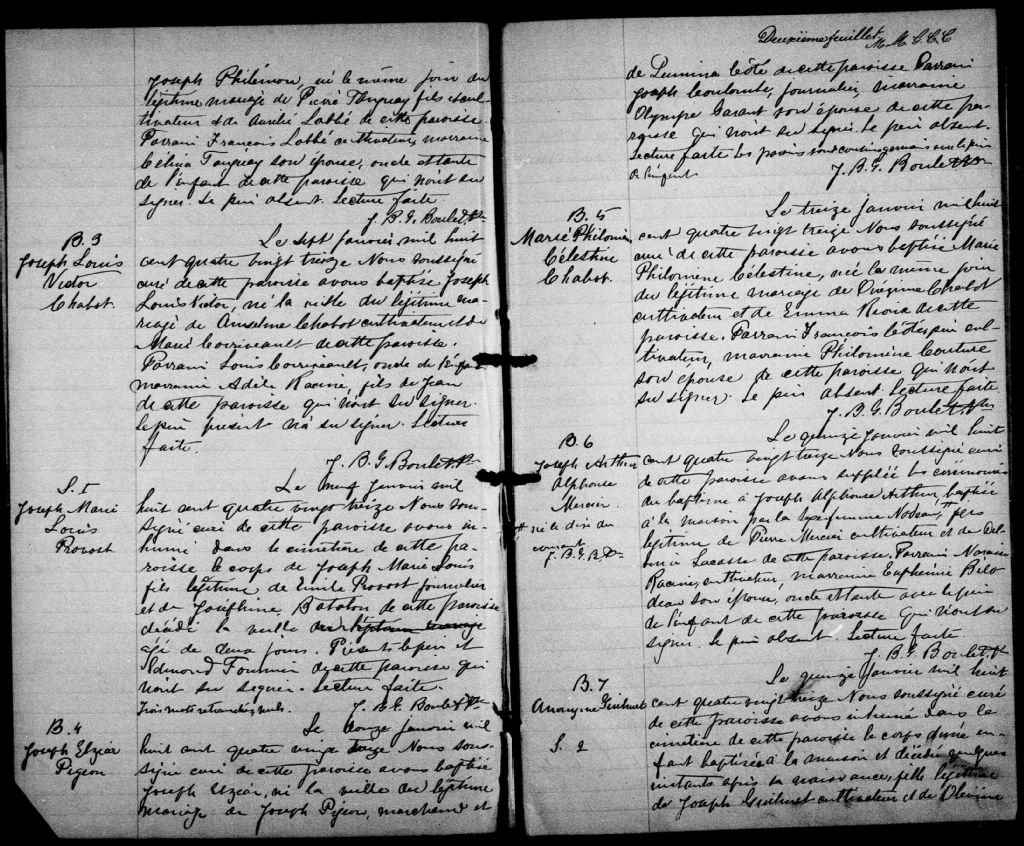 Joseph Philémon, né le même jour du
légitime mariage de Pierre Tanguay fils et cul-
tivateur et de Aurélie Labbé de cette paroisse
Parrain François Labbé cultivateur, marraine
Célina Tanguay son épouse, oncle et tante
de l'enfant de cette paroisse qui n'ont su
signer. Le père absent. Lecture faite
J. B. G. Boulet, Ptre
B. 3
Joseph Louis
Victor
Chabot.
Le sept janvier mil huit
cent quatre vingt treize Nous soussigné
curé de cette paroisse avons baptisé Joseph
Louis Victor, né la veille du légitime ma-
riage de Anselme Chabot cultivateur et de
Marie Corriveault de cette paroisse.
Parrain Louis Corriveault, oncle de l'enfant
marraine Adèle Racine, fils de Jean
de cette paroisse qui n'ont su signer.
Le père présent n'a su signer. Lecture
faite.
J. B. G. Boulet Ptre
S. I
Joseph Marie
Louis
Provost.
Le neuf janvier mil
huit cent quatre vingt treize Nous sous-
signé curé de cette paroisse avons in-
humé dans le cimetière de cette pa-
roisse le corps de Joseph Marie Louis
fils légitime de Emile Provost journalier
et de Joséphine de cette paroisse
décédé la veille du légitime mariage
âgé de deux jours. Présents le père et
Edmond Fournier de cette paroisse qui
n'ont su signer. Lecture faite.
Trois mots retranchés nuls. J. B. G. Boulet Ptre
B. 4
Joseph Elzéar
Pigeon
Le onze janvier mil
huit cent quatre vingt treize Nous sous-
signé curé de cette paroisse avons baptisé
Joseph Elzéar, né la veille du légitime
mariage de Joseph Pigeon, marchand et
Deuxième feuillet M. M. G. C. C
de Lumina Côté de cette paroisse Parrain
Joseph Coulombe, journalier, marraine
Olympe Garant son épouse de cette pa-
roisse qui n'ont su signer. Le père absent.
Lecture faite Les parrains sont cousins germains avec le père
de l'enfant.
J. B. G. Boulet Ptre
B. 5
Marie Philomène
Célestine
Chabot.
Le treize janvier mil huit
cent quatre vingt treize Nous soussigné
curé de cette paroisse avons baptisé Marie
Philomène Célestine, née la même jour
du légitime mariage de Onézime Chabot
cultivateur et de Emma Roux de cette
paroisse. Parrain François Côté père cul-
tivateur, marraine Philomène Couture
son épouse de cette paroisse qui n'ont
su signer. Le père absent Lecture faite
J. B. G. Boulet Ptre
B. 6
Joseph Arthur
Alphonse
Mercier.
# né le dix du
courant
J. B. G. B. Ptre
Le quinze janvier mil huit
cent quatre vingt treize Nous soussigné curé
de cette paroisse avons suppléé les cérémonies
du baptême à Joseph Alphonse Arthur, baptisé
à la maison par la sage femme Nadeau, # fils
légitime de Pierre Mercier cultivateur et de Del-
Lacasse de cette paroisse. Parrain
Racine, cultivateur, marraine Euphémie Bilo-
deau son épouse, oncle et tante avec le père
de l'enfant de cette paroisse qui n'ont su
signer. Le père absent. Lecture faite
J. B. G. Boulet, Ptre
B. 7
Anonyme Guilmet
S. 2
Le quinze janvier mil huit
cent quatre vingt treize Nous soussigné curé
de cette paroisse avons inhumé dans le
cimetière de cette paroisse le corps d'une en-
fant baptisée à la maison et décédée quelques
instants après sa naissance, fille légitime
de Joseph Guilmet cultivateur et de Olivine